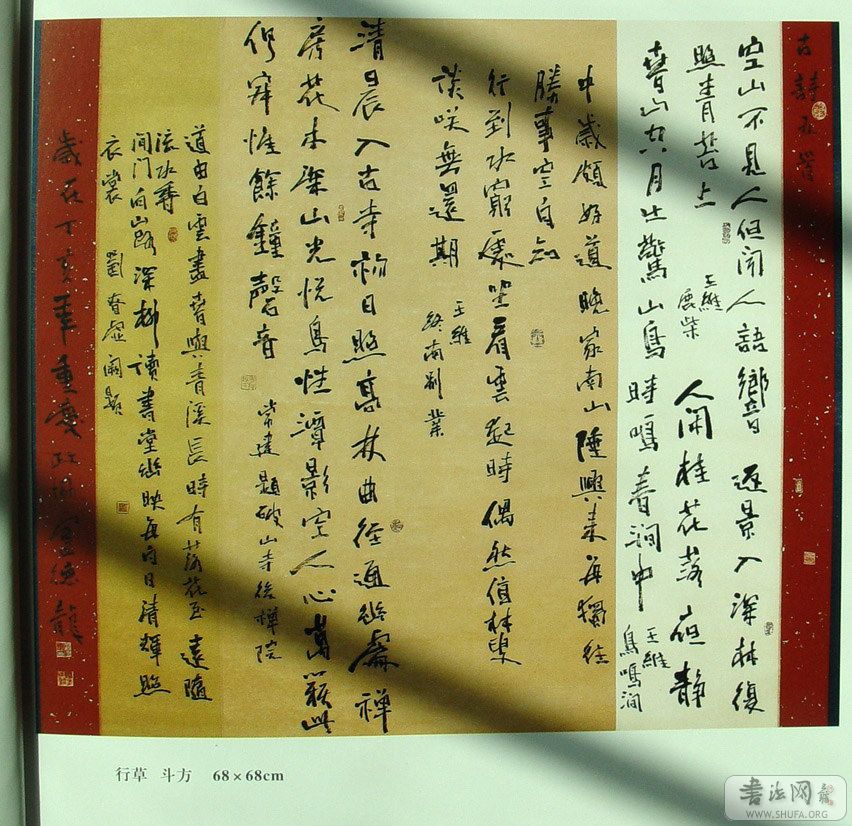 古詩五首
空山不見人但聞人語響返景入深林復
照青苔上
王維
鹿柴
人闲桂花落夜静
春山空月出驚山鳥時鳴春澗中
王維
鳥鳴澗
中歲頗好道晚家南山陲興来每獨往
勝事空自知
行到水窮處坐看雲起時偶然值林叟
談咲無還期
王維
終南别業
清晨入古寺初日照高林曲徑通幽處禅
房花木深山光悦鳥性潭影空人心萬籁此
俱寂惟餘鐘磬音
常建題破山寺後禅院
道由白雲盡春與青溪長時有落花至遠隨
流水香
闲门向山路深柳读書堂幽映每白日清輝照
衣裳
劉眘虚
阙題
歲在丁亥年重慶 金德龍
行草 斗方 68×68cm
書法网
WWW.SHUFA.ORG